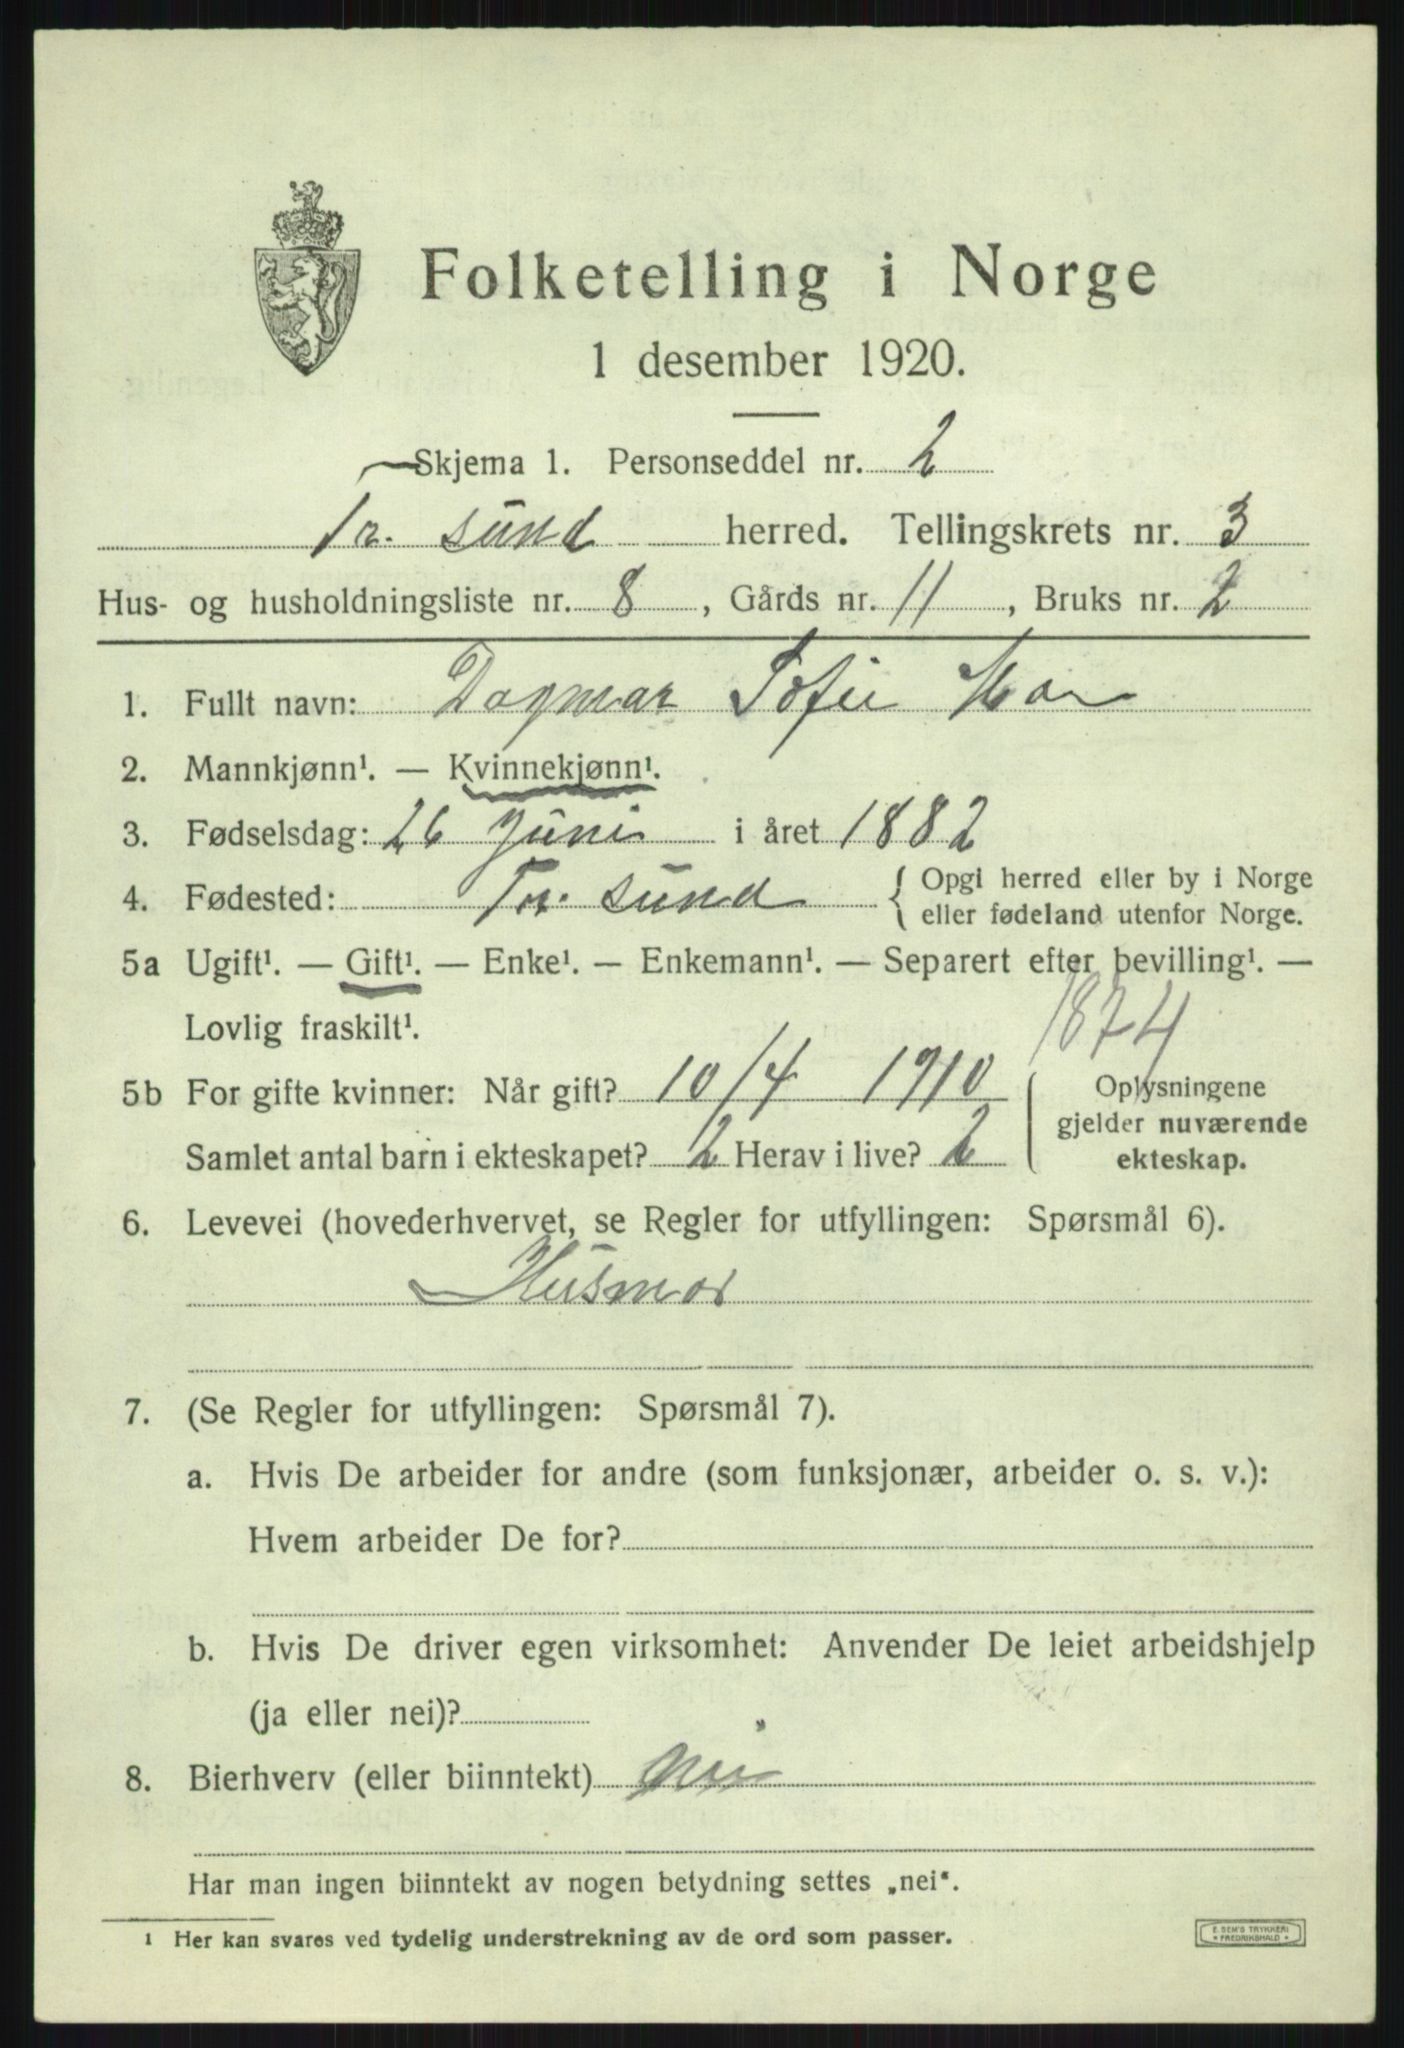 Folketelling i Norge
1 desember 1920.
Skjema 1. Personseddel nr. 2
Tr. sund herred. Tellingskrets nr. 3
Hus- og husholdningsliste nr. 8, Gårds nr. 11, Bruks nr. 2
1. Fullt navn: Dagmar Sofie
2. Mannkjønn¹. — Kvinnekjønn¹.
3. Fødselsdag: 26 Juni i året 1882
4. Fødested: Tr. sund { Opgi herred eller by i Norge
eller fødeland utenfor Norge.
5a Ugift¹. — Gift¹. — Enke¹. — Enkemann¹. — Separert efter bevilling¹. —
Lovlig fraskilt¹.
1874
5b For gifte kvinner: Når gift? 10/4 1910
Samlet antal barn i ekteskapet? 2 Herav i live? 2
Oplysningene
gjelder nuværende
ekteskap.
6. Levevei (hovederhvervet, se Regler for utfyllingen: Spørsmål 6).
Husmor
7. (Se Regler for utfyllingen: Spørsmål 7).
a. Hvis De arbeider for andre (som funksjonær, arbeider o. s. v.):
Hvem arbeider De for?
b. Hvis De driver egen virksomhet: Anvender De leiet arbeidshjelp
(ja eller nei)?
8. Bierhverv (eller biinntekt) nei
Har man ingen biinntekt av nogen betydning settes „nei“.
¹ Her kan svares ved tydelig understrekning av de ord som passer.
E. SEM'S TRYKKERI
* FREDRIKSHALD *